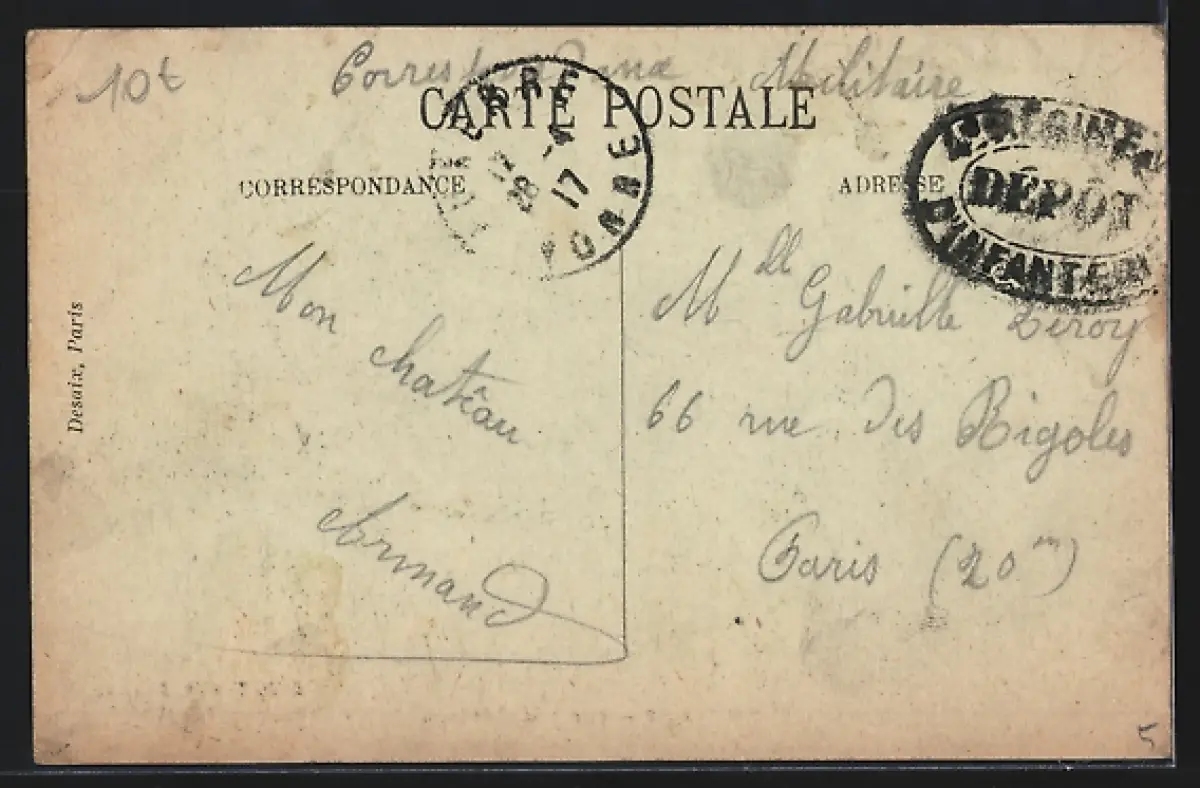 10t
Correspondance Militaire
CARTE POSTALE
CORRESPONDANCE
ADRESSE
28 -4
17
YONNE
DÉPÔT
D'INFANTERIE
Mon
chatêau
Armand
Mlle Gabrielle Leroy
66 rue des Rigoles
Paris (20m)
Desaix, Paris
5